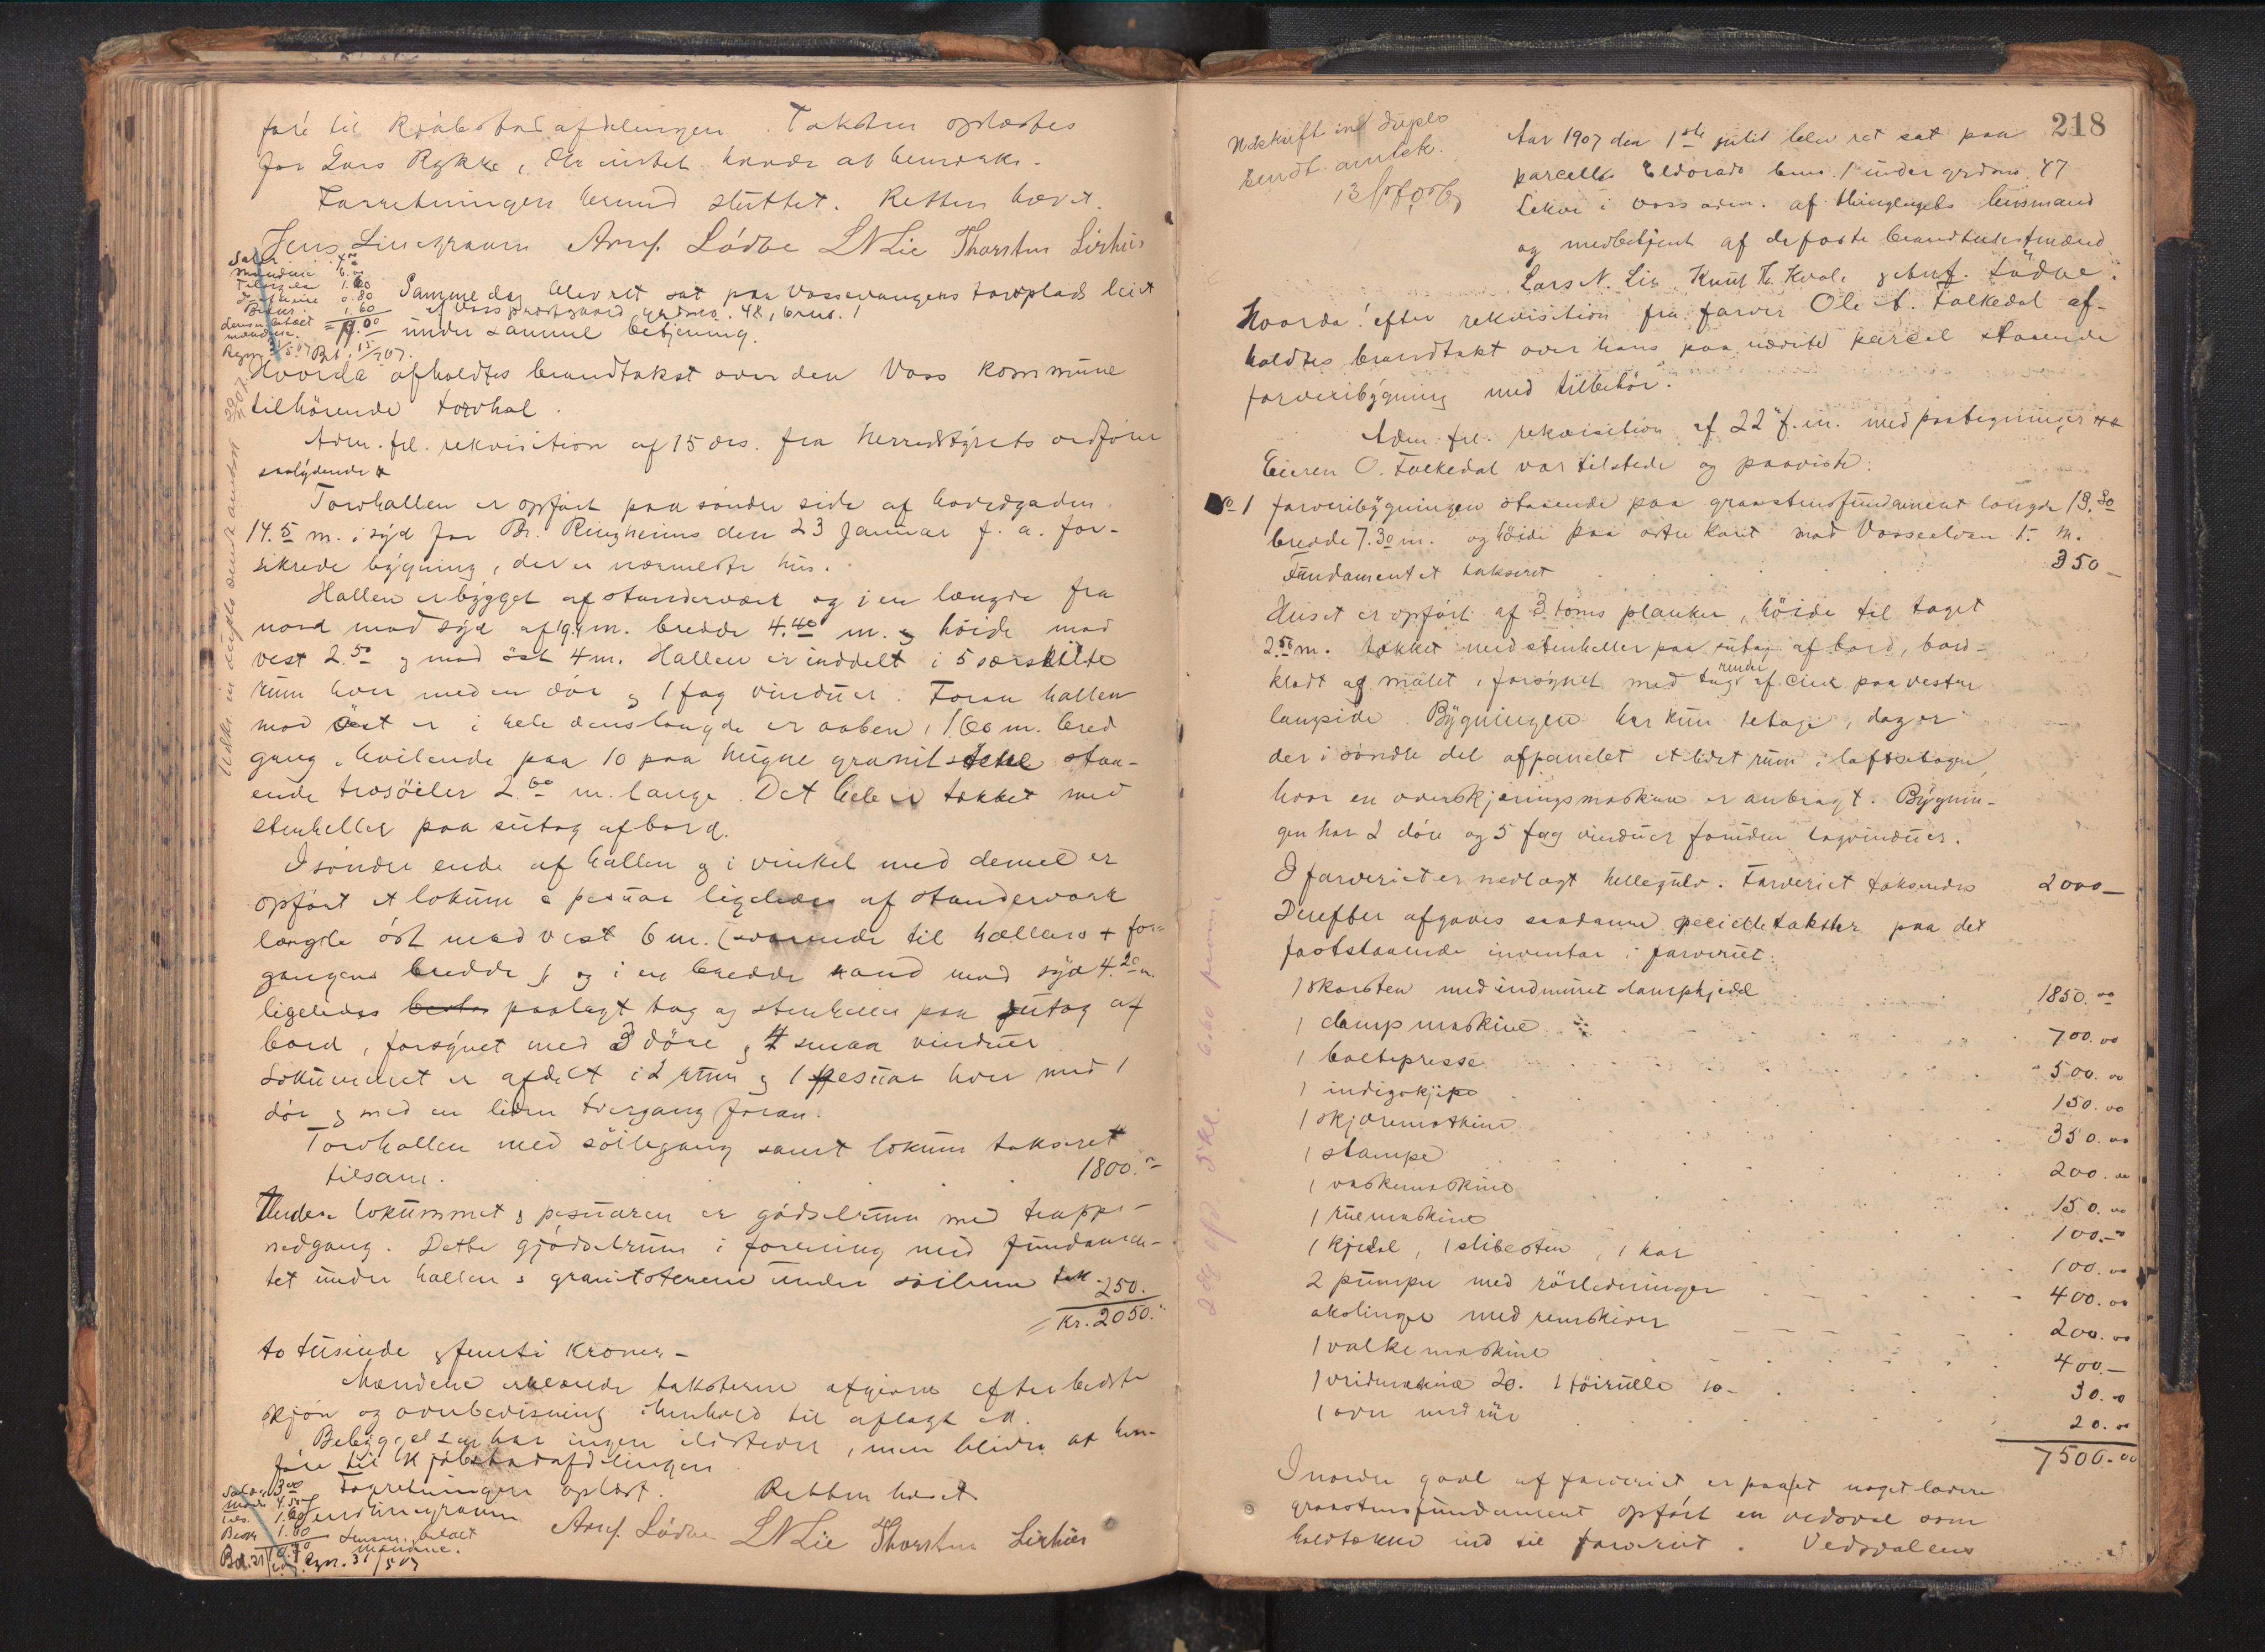 føre til Kjøbstadafdelingen. Taksten oplæstes
for Lars Rykke, der intet havde at bemærke.
Forretningen hermed sluttet. Retten hævet.
Jens Linegraven Arnf. Lödve L N Lie Thorsten Lirhus
Salær
mændene 6.00
1.60
0.80
1.60
Samme dag blev ret sat paa Vossevangens torvplads leiet
af Voss prestegaard grdsno. 48, brns. 1
under samme betjening.
Hvorda afholdtes brandtakst over den Voss kommune
tilhørende torvhal.
Adm. frl. rekvisition af 15 ds. fra herredstyrets ordfører
saalydende
Torvhallen er opført paa søndre side af hovedgaden
14.5 m. i syd for Br. Ringheims den 23 Januar f. a. for-
sikrede bygning, der er nærmeste hus.
Hallen er bygget af standerværk og i en længde fra
nord mod syd af 19.4 m. bredde 4.40 m. og høide mod
vest 2.50 og mod øst 4 m. Hallen er inddelt i 5 særskilte
rum hver med en dør og 1 fag vinduer. Foran hallen
mod øst er i hele dens længde en aaben, 1.60 m. bred
gang, hvilende paa 10 paa hugne granitstene staa-
ende træsøiler 2.60 m. lange. Det hele er tækket med
stenheller paa sutag af bord.
I søndre ende af hallen og i vinkel med denne er
opført et lokum & pesuar ligeledes af standerværk
længde øst mod vest 6 m. (svarende til hallens + for-
gangens bredde) og i en bredde nord mod syd 4.20 m.
ligeledes paalagt tag og stenheller paa sutag af
bord, forsynet med 3 døre og 4 smaa vinduer
Lokummet er afdelt i 2 rum og 1 pesuar hver med 1
dør og med en liden tvergang foran.
Torvhallen med søilegang samt lokum takseret
tilsam. 1800.-
Under lokummet & pesuaren er gjødselrum med trappe-
nedgang. Dette gjødselrum i forening med fundamen-
tet under hallen & granitstenene under søilerne tak. 250.
= Kr. 2050."
to tusinde og femti Kroner.-
Mændene erklærede taksterne afgivne efter bedste
skjøn og overbevisning i henhold til aflagt ed.
Bebyggelsen har ingen ildsteder, men bliver at hen-
føre til Kjøbstadafdelingen
Forretningen oplæst. Retten hævet
Jens Linegraven Arnf. Lödve L N Lie Thorsten Lirhus
Salær 3.00
4.50
1.60
Lensm. betalt
mændene.
218
Udskrift in duplo
sendt amtsk.
Aar 1907 den 1ste juli blev ret sat paa
parcellen Eldorado brns. 1 under grdsno. 47
Lekve i Voss adm. af thinglagets lensmand
og medbetjent af de faste brandtakstmænd
Lars N. Lie, Knut Th. Kvale og Arnf. Lödve.
Hvorda! efter rekvisition fra farver Ole A. Folkedal af-
holdtes brandtakst over hans paa nævnte parcel staaende
farveribygning med tilbehør.
Adm. frl. rekvisition af 22 f. m. med paategninger
Eieren O. Folkedal var tilstede og paaviste:
No 1 farveribygningen staaende paa graastensfundament længde 13.30
bredde 7.30 m. og høide paa østre kant mod Vosseelven 5 m.
Fundamentet takseret 350-
Huset er opført af 3 toms planker, høide til taget
2.50 m. tækket med stenheller paa sutag af bord, bord-
klædt og malet, forsynet med tagrender af zink paa vestre
langside. Bygningen har kun 1 etage, dog er
der i søndre del afpanelet et lidet rum i loftsetagen,
hvor en overskjæringsmaskine er anbragt. Bygnin-
gen har 2 døre og 5 fag vinduer foruden tagvinduer.
I farveriet er nedlagt hellegulv. Farveriet takseredes 2000-
Derefter afgaves saadanne specielle takster paa det
fastståaende inventar i farveriet:
1 skorsten med indmuret dampkjedel 1850.00
1 dampmaskine 700.00
1 boltepresse 500.00
1 indigokjipe 150.00
1 skjæremaskine 350.00
1 stampe 200.00
1 vaskemaskine 150.00
1 ruemaskine 100.-
1 kjedel, 1 slibesten, 1 kar 100.00
2 pumper med rørledninger 400.00
akslinger med remskiver 200.00
1 valkemaskine 400.-
1 vridemaskine 20. 1 tøirulle 10- 30.00
1 ovn med rør 20.00
7500.00
I nordre gavl af farveriet er paa et noget lavere
graastensfundament opført en vedsval som
Vedsvalens